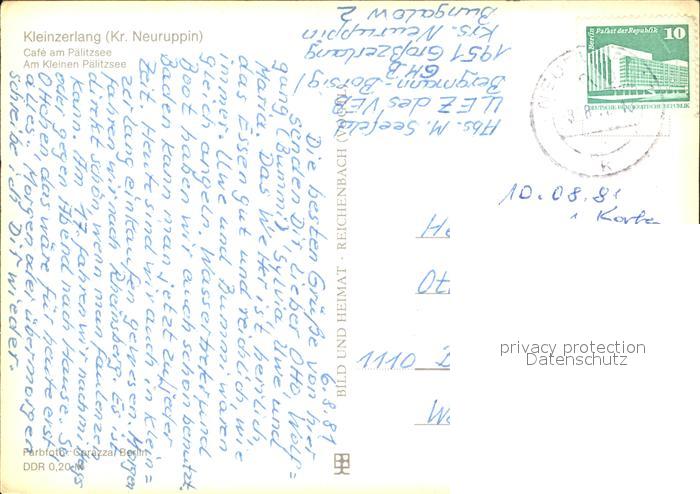 Kleinzerlang (Kr. Neuruppin)
Café am Pälitzsee
Am Kleinen Pälitzsee
6.8.81
Die besten Grüße von hier
senden Dir, lieber Otto, Wolf=
gung (Bummi), Sylvia, Uwe und
Maria. Das Wetter ist herrlich,
das Essen gut und reichlich, wie
immer. Uwe und Bummi waren
gleich angeln. Wassertreter und
Boot haben wir auch schon benutzt.
Baden kann man jetzt zu jeder
Zeit. Heute sind wir auch in Klein=
zerlang einkaufen gewesen. Morgen
fahren wir nach Rheinsberg. Es ist
direkt schön, wenn man faulenzen
kann. Am 17. fahren wir nachmittags
oder gegen Abend nach Hause. So
Ottchen, das wäre für heute erst
alles. Morgen oder übermorgen
schreibe ich Dir wieder.
Farbfoto: Corazza, Berlin
DDR 0,20 M
BILD UND HEIMAT · REICHENBACH
Abs. M. Seefeld
LLEZ des VEB
Bergmann-Borsig/
GHB
1951 Großzerlang
Krs. Neuruppin
Bungalow 2
Berlin Palast der Republik
10
DEUTSCHE DEMOKRATISCHE REPUBLIK
10.08.81
1 Karte
He
07
1110
We
privacy protection
Datenschutz